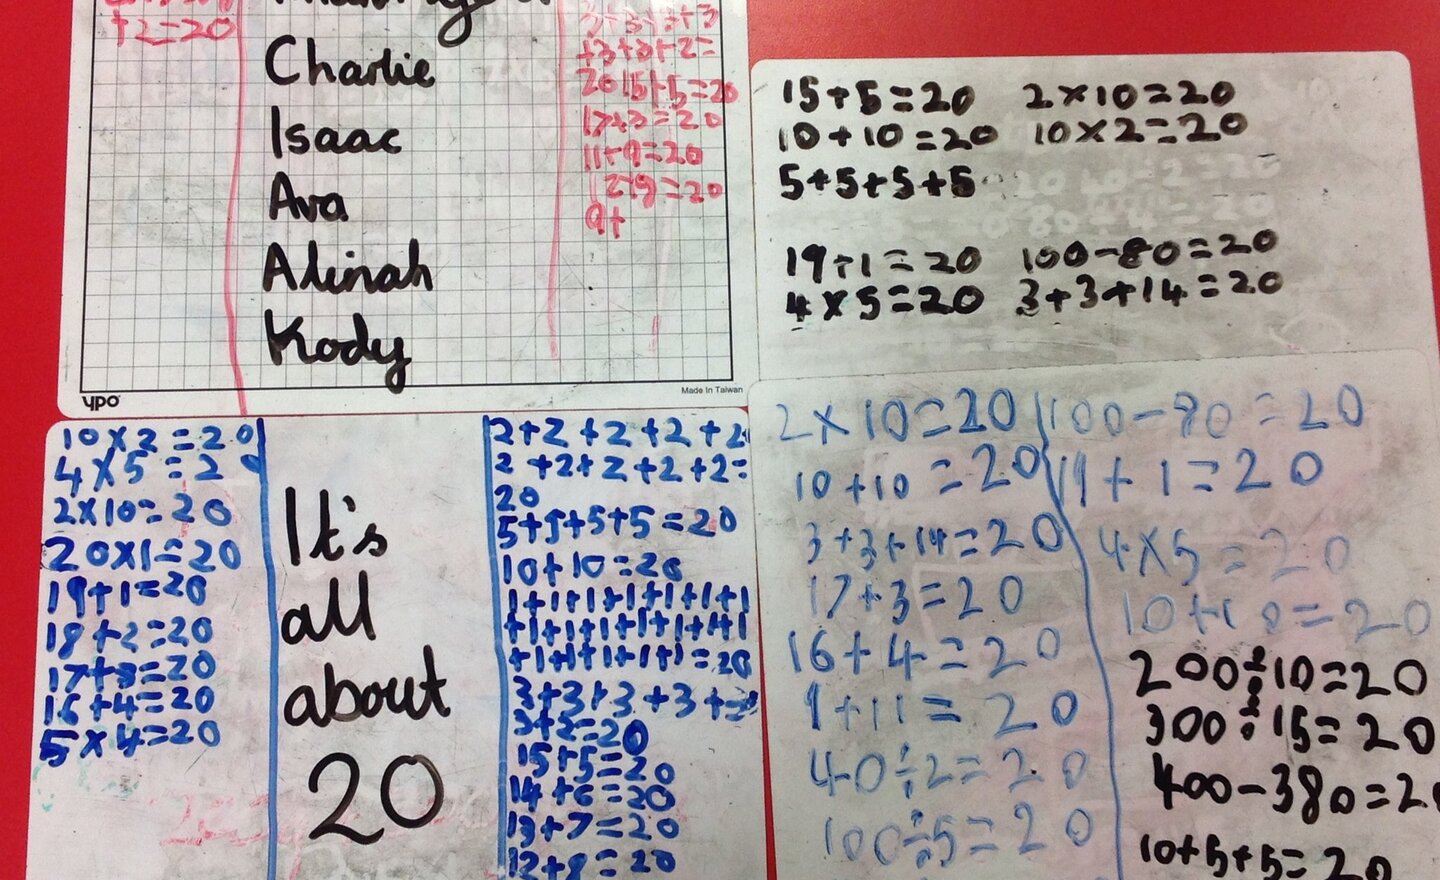 +2=20
Charlie
Isaac
Ava
Alinah
Kody
3+3+3+3
+3+3+2=
20 15+5=20
17+3=20
11+9=20
12+8=20
9+
ypo
Made In Taiwan
15+5=20 2×10=20
10+10=20 10×2=20
5+5+5+5
19+1=20 100-80=20
4×5=20 3+3+14=20
10×2=20
4×5=20
2×10=20
20×1=20
19+1=20
18+2=20
17+3=20
16+4=20
5×4=20
It's
all
about
20
2+2+2+2+2
2+2+2+2+2=
20
5+5+5+5=20
10+10=20
1+1+1+1+1+1+1
+1+1+1+1+1+1+1
+1+1+1+1+1=20
3+3+3+3+
3+2=20
15+5=20
14+6=20
13+7=20
12+8=20
2×10=20
10+10=20
3+3+14=20
17+3=20
16+4=20
9+11=20
40÷2=20
100÷5=20
100-80=20
19+1=20
4×5=20
10+10=20
200÷10=20
300÷15=20
400-380=20
10+5+5=20